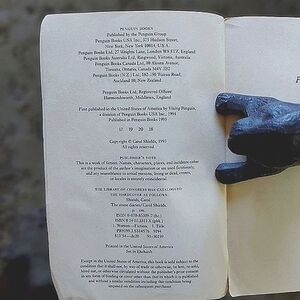 PENGUIN BOOKS
Published by the Penguin Group
Penguin Books USA Inc., 375 Hudson Street,
New York, New York 10014, U.S.A.
Penguin Books Ltd, 27 Wrights Lane, London W8 5TZ, England
Penguin Books Australia Ltd, Ringwood, Victoria, Australia
Penguin Books Canada Ltd, 10 Alcorn Avenue,
Toronto, Ontario, Canada M4V 3B2
Penguin Books (N.Z.) Ltd, 182-190 Wairau Road,
Auckland 10, New Zealand
Penguin Books Ltd, Registered Offices:
Harmondsworth, Middlesex, England
First published in the United States of America by Viking Penguin,
a division of Penguin Books USA Inc., 1994
Published in Penguin Books 1995
17 19 20 18
Copyright © Carol Shields, 1993
All rights reserved
PUBLISHER'S NOTE
This is a work of fiction. Names, characters, places, and incidents either
are the product of the author's imagination or are used fictitiously,
and any resemblance to actual persons, living or dead, events,
or locales is entirely coincidental.
THE LIBRARY OF CONGRESS HAS CATALOGUED
THE HARDCOVER AS FOLLOWS:
Shields, Carol.
The stone diaries/Carol Shields.
p. cm.
ISBN (hc.)
ISBN (pbk.)
1. Women—Fiction. I. Title.
PR9199.3.S514S76 1994
813'.54—dc20
Printed in the United States of America
Set in Ehrhardt
Except in the United States of America, this book is sold subject to the
condition that it shall not, by way of trade or otherwise, be lent, re-sold,
hired out, or otherwise circulated without the publisher's prior consent
in any form of binding or cover other than that in which it is published
and without a similar condition including this condition being
imposed on the subsequent purchaser.